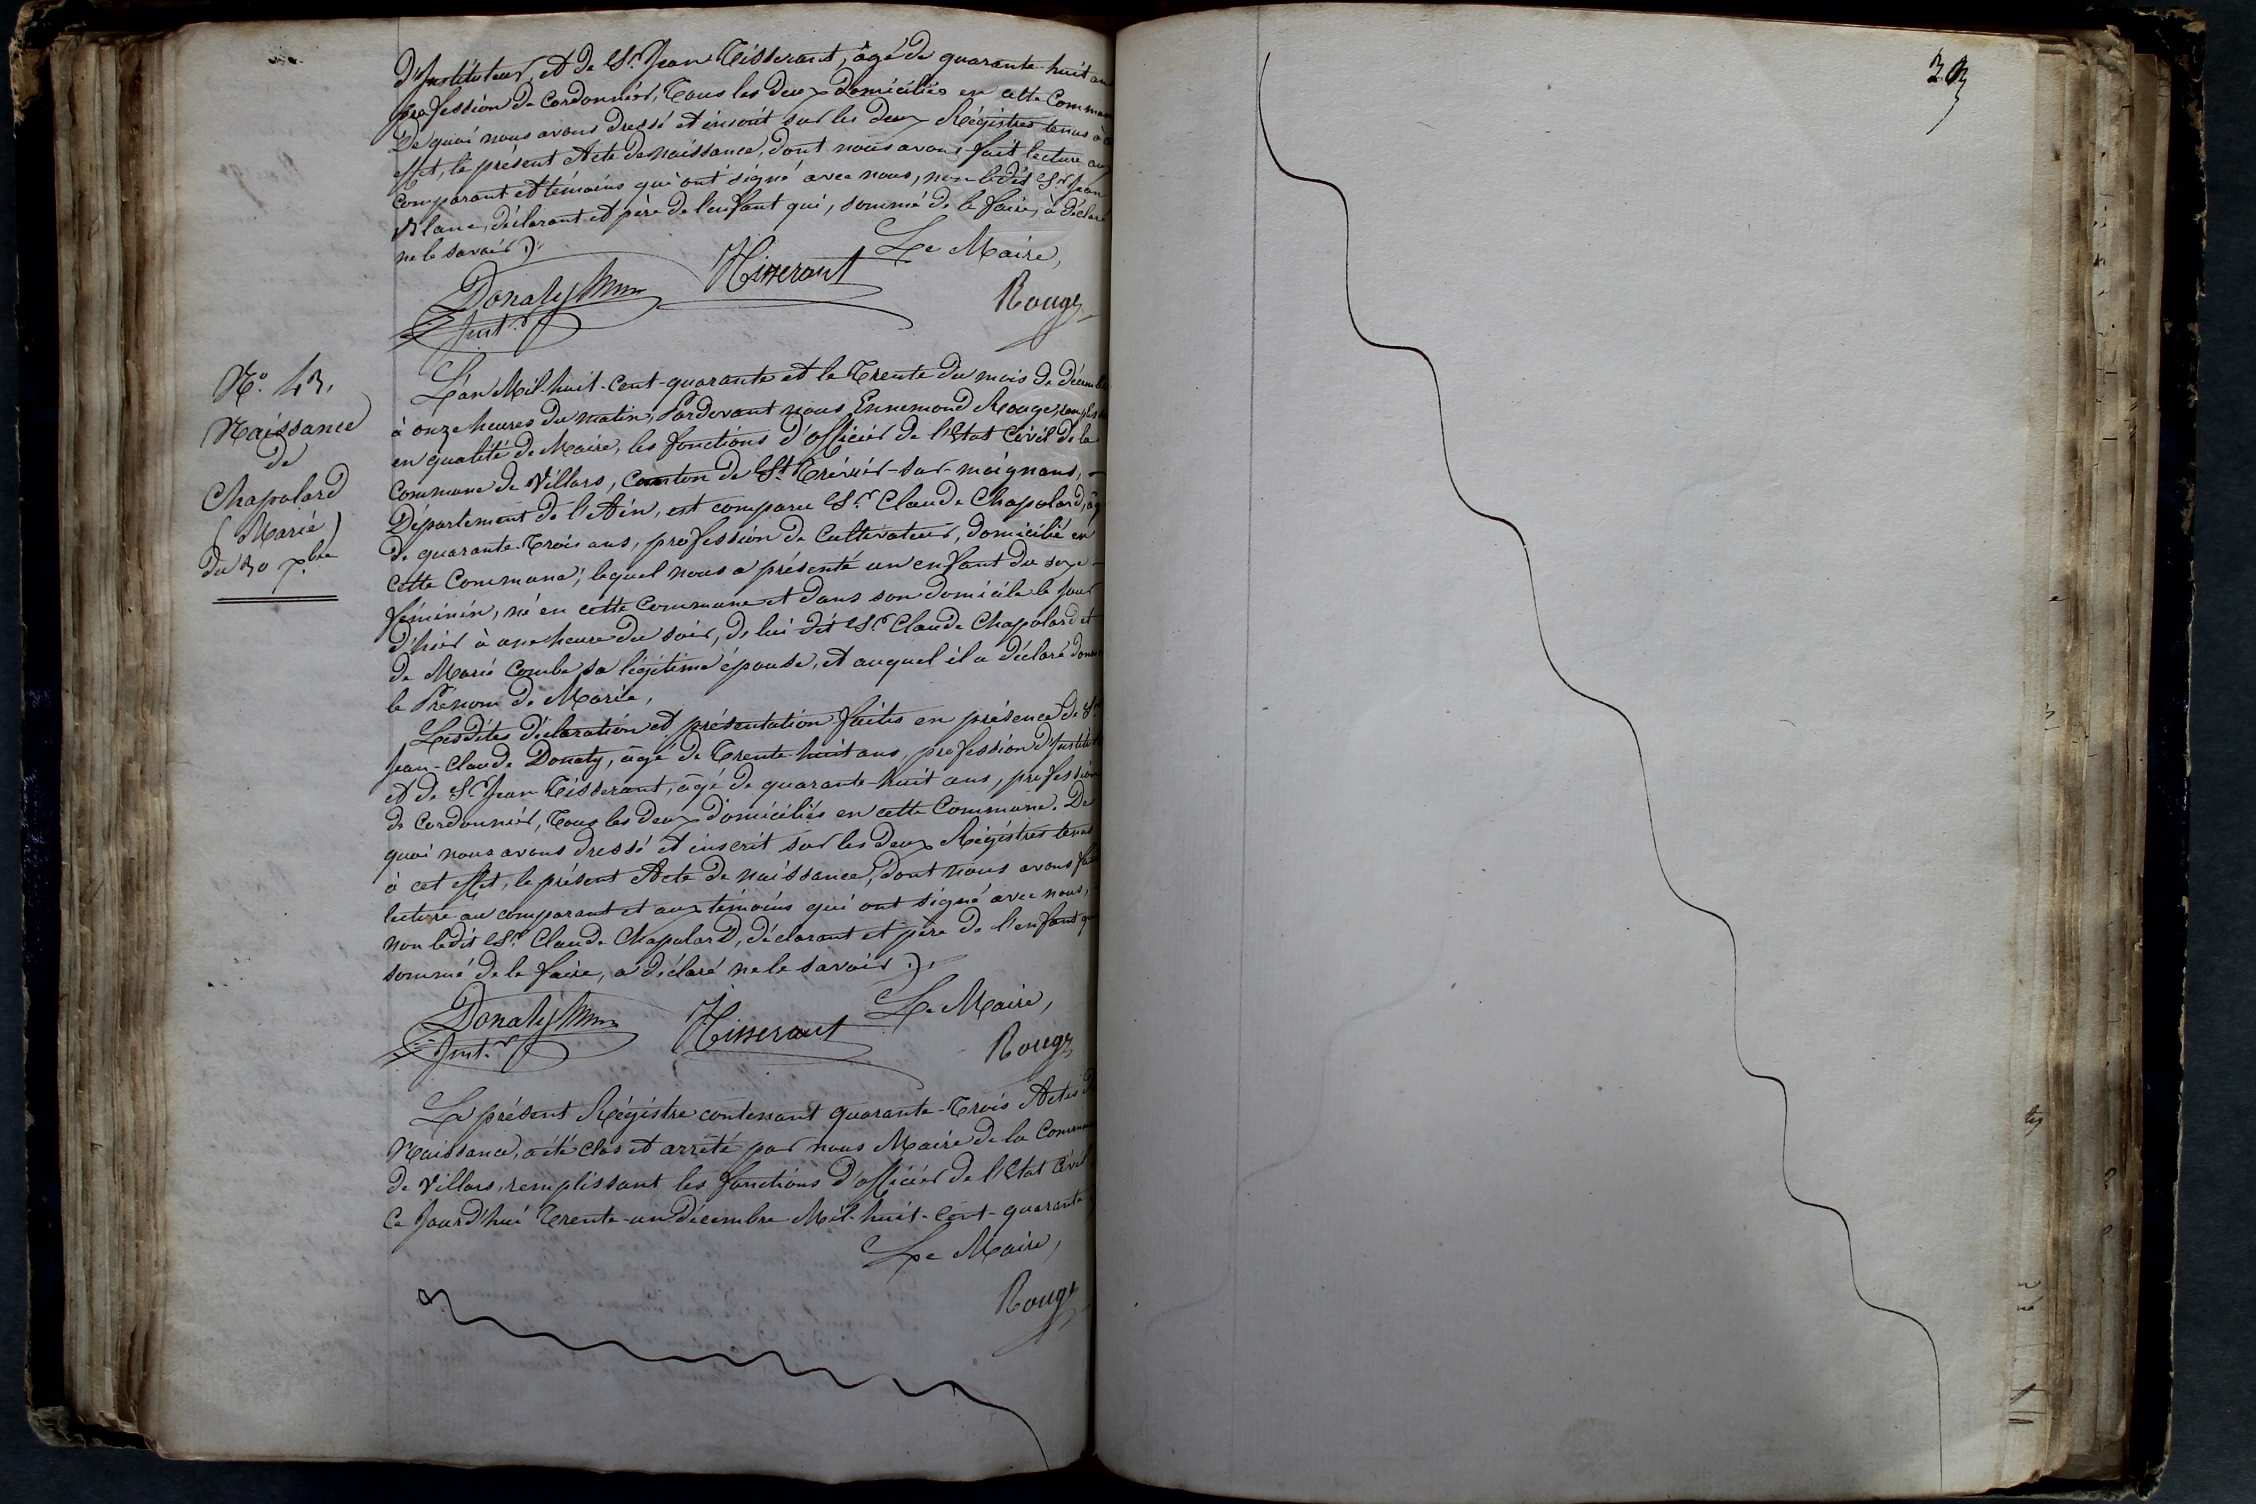 d'Instituteur, et de Sr. Jean Tisserant, âgé de quarante-huit an
profession de Cordonnier, Tous les deux domiciliés en cette Commun
De quoi nous avons dressé et inscrit sur les deux Régistres tenus à
effet, le présent Acte de Naissance, dont nous avons fait lecture au
Comparant et témoins qui ont signé avec nous, non ledit Sr. Jean
Blanc, déclarant et père de l'enfant qui, sommé de le faire, à déclaré
ne le savoir.
Le Maire,
Donaty
Instr.
Tisserant
Rouge
No. 43.
Naissance
de
Chapolard
(Marie)
du 30 Xbre
L'an Mil-huit-Cent-quarante et le Trente du mois de décemb
à onze heures du matin, Pardevant nous Ennemond Rouge, remplis
en qualité de Maire, les fonctions d'officier de l'Etat Civil de la
Commune de Villars, Canton de St. Trévier-sur-moignans,
Département de l'Ain, est comparu Sr. Claude Chapolard, âg
de quarante-Trois ans, profession de Cultivateur, domicilié en
cette Commune; lequel nous a présenté un enfant du sexe
féminin, né en cette Commune et dans son domicile le jour
d'hier à une heure du soir, de lui dit Sr. Claude Chapolard et
de Marie Combe sa légitime épouse, et auquel il a déclaré donn
le Prénom de Marie,
Lesdites déclaration et présentation faites en présence de Sr.
Jean-Claude Donaty, âgé de Trente-huit ans, profession d'Institut
et de Sr. Jean Tisserant, âgé de quarante-huit ans, profession
de Cordonnier, Tous les deux domiciliés en cette Commune. De
quoi nous avons dressé et inscrit sur les deux Régistres tenus
à cet effet, le présent Acte de naissance, dont nous avons fait
lecture au comparant et aux témoins qui ont signé avec nous,
non ledit Sr. Claude Chapolard, déclarant et père de l'enfant qui
sommé de le faire, a déclaré ne le savoir.
Le Maire,
Donaty
Instr.
Tisserant
Rouge
Le présent Régistre contenant quarante-Trois Actes d
Naissance, a été clos et arrêté par nous Maire de la Commun
de Villars, remplissant les fonctions d'officier de l'Etat Civil
Ce Jourd'hui Trente-un Décembre Mil-huit-Cent-quarante
Le Maire,
Rouge